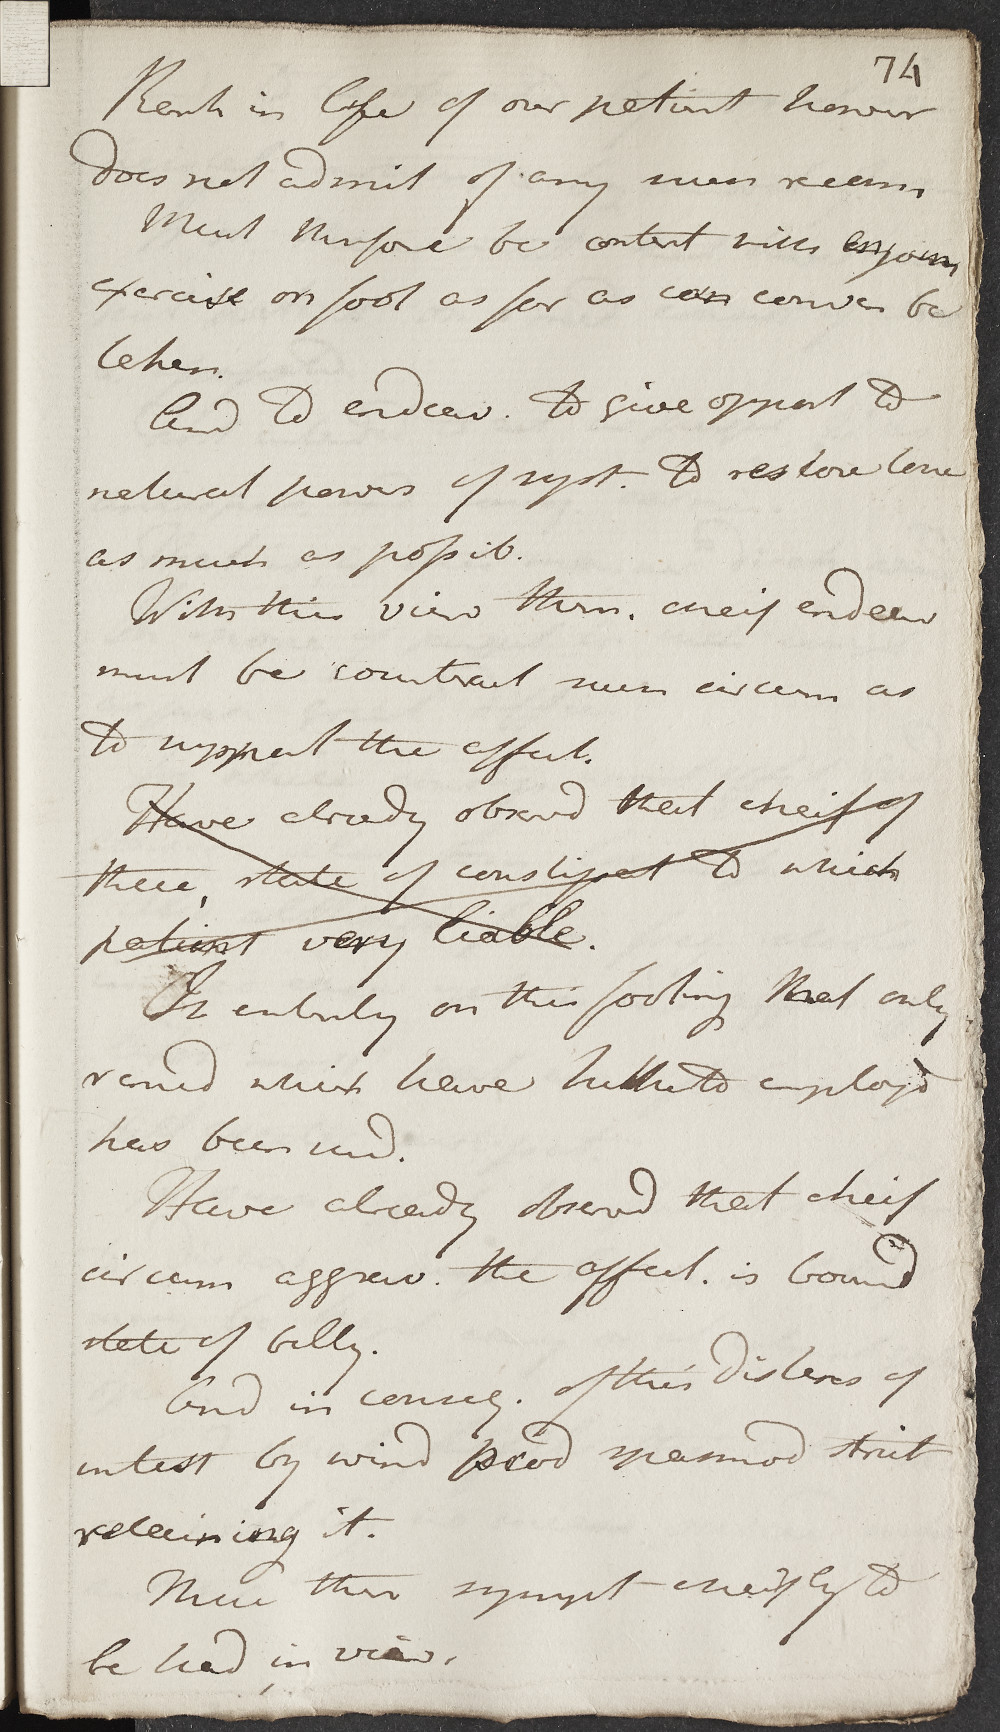 74
Rank in life of our patient however
does not admit of any such
Must therfore be content with enjoin
exercise on foot as far as can conven be
taken.
And to endeav. to give opport to
natural powers of syst. to restore tone
as much as possib.
With this view then. cheif endeav
must be countract such circum as
to support the affect.
Have already observd that cheif of
these, state of constipat to which
patient very liable.
Is entirely on this footing that only
remed which have hitherto employd
has been usd.
Have already observd that cheif
circum aggrav. the affect. is bound
state of belly.
And in conseq. of this Distens of
intest by wind prod spasmod strict
retaining it.
These then sympt cheifly to
be had in view.